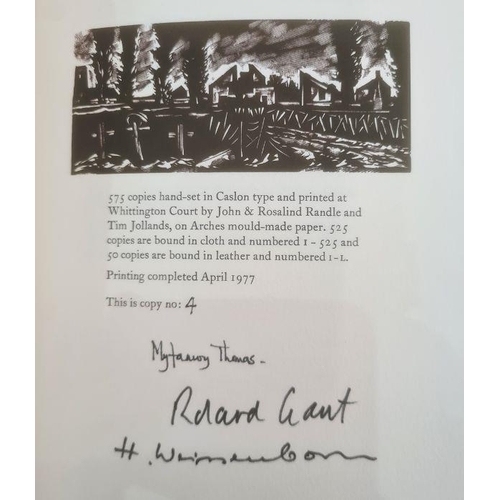 575 copies hand-set in Caslon type and printed at
Whittington Court by John & Rosalind Randle and
Tim Jollands, on Arches mould-made paper. 525
copies are bound in cloth and numbered 1 – 525 and
50 copies are bound in leather and numbered I–L.
Printing completed April 1977
This is copy no: 4
Myfanwy Thomas -
Roland Gant
H. Weissenborn